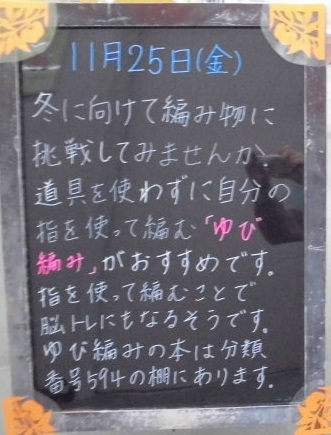 11月25日(金)
冬に向けて編み物に
挑戦してみませんか
道具を使わずに自分の
指を使って編む「ゆび
編み」がおすすめです。
指を使って編むことで
脳トレにもなるそうです。
ゆび編みの本は分類
番号594の棚にあります。